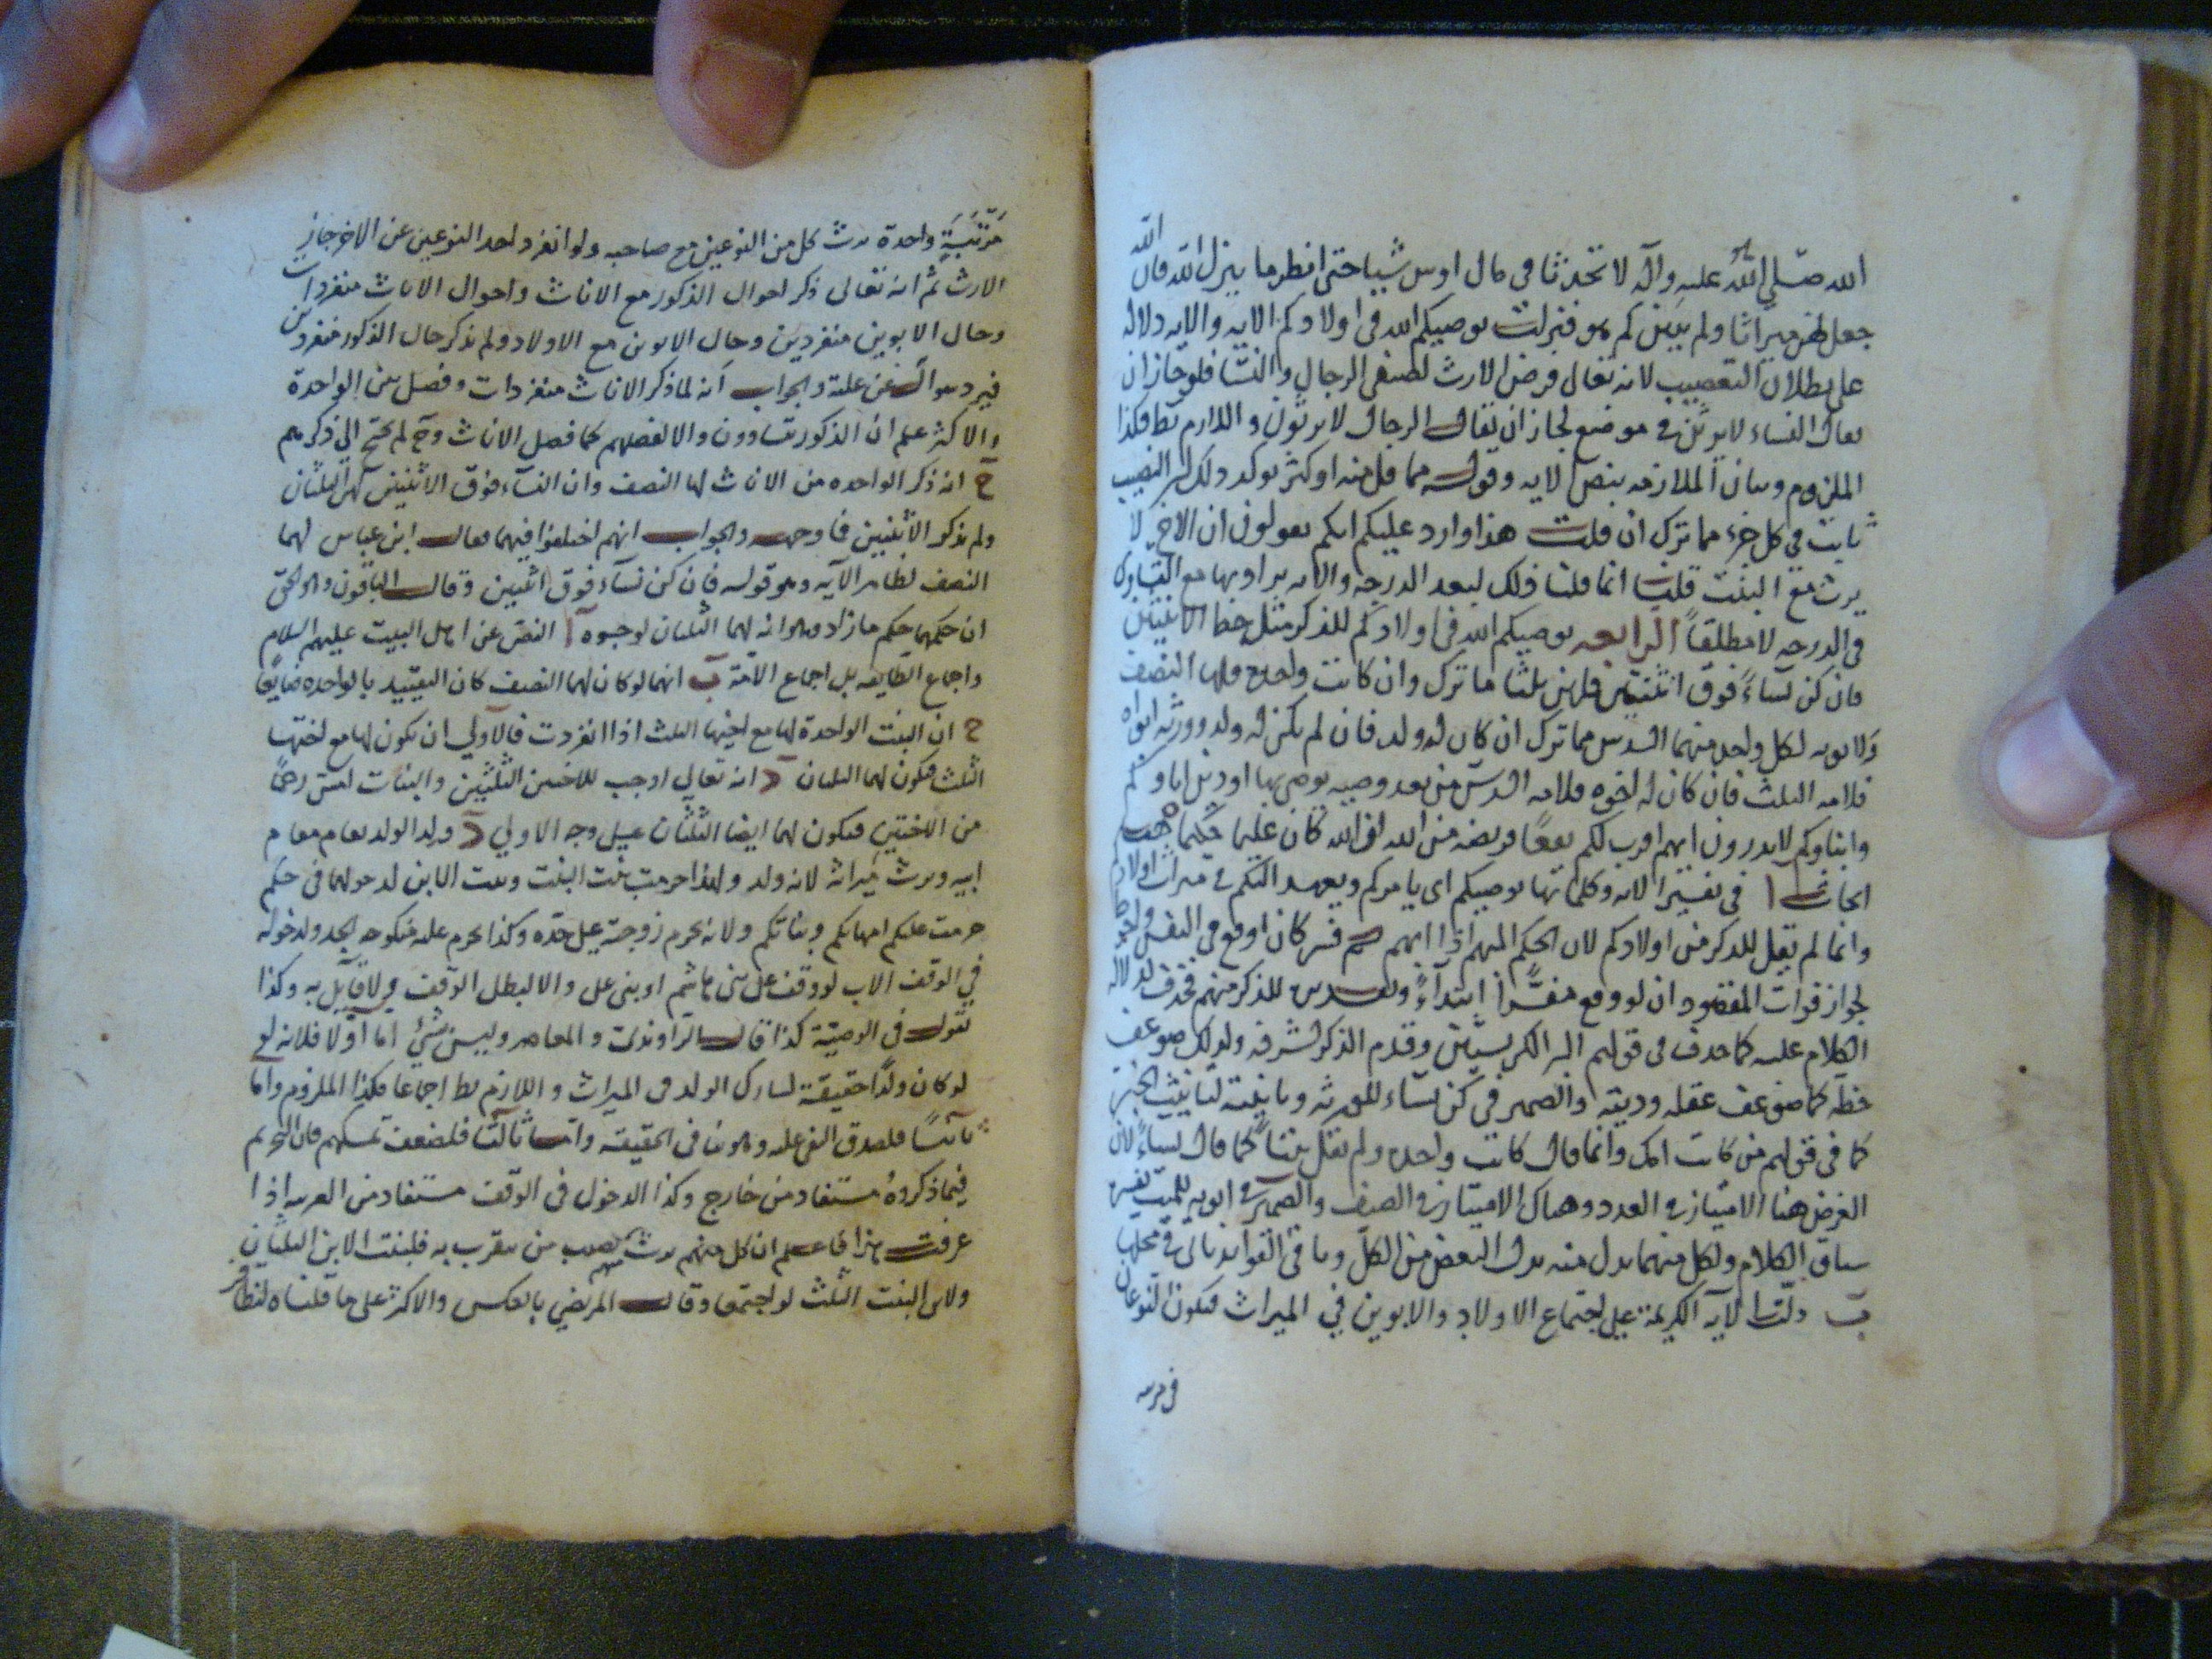 الله صلى الله عليه وآله لا تحدثا في مال اوس شيا حتى انظر ما ينزل الله فان الله
جعل لهن ميراثا ولم يبين كم هو فنزلت يوصيكم الله في اولادكم الايه والايه دلاله
على بطلان التعصيب لانه تعالى فرض الارث لصنفى الرجال والنسا فلو جاز ان
يقال النساء لا يرثن في موضع لجاز ان يقال الرجال لا يرثون و اللازم بط فكذا
الملزوم وبيان الملازمه بنص الايه وقوله مما قل منه او كثر يوكد ذلك النصيب
ثابت في كل جزء مما ترك ان قلت هذا وارد عليكم انكم تقولون ان الاخ لا
يرث مع البنت قلت انما قلنا ذلك لبعد الدرجه والايه يراد بها مع التساوى
في الدرجه لا مطلقاً الرابعه يوصيكم الله في اولادكم للذكر مثل حظ الانثيين
فان كن نساءً فوق اثنتين فلهن ثلثا ما ترك وان كانت واحدة فلها النصف
ولابويه لكل واحد منهما السدس مما ترك ان كان له ولد فان لم يكن له ولد وورثه ابواه
فلامه الثلث فان كان له اخوه فلامه السدس من بعد وصيه يوصى بها او دين اباوكم
وابناوكم لا تدرون ايهم اقرب لكم نفعا فريضه من الله ان الله كان عليما حكيما هنا
ابحاث ا في تفسير الايه وكلماتها يوصيكم اى يامركم ويعهد اليكم في ميراث اولادكم
وانما لم يقل للذكر من اولادكم لان الحكم المهم اذا ابهم ثم فسر كان اوقع في النفس
لجواز فوات المقصود ان لو وقع مفسَّرا ابتداءً وتقديره للذكر منهم فحذف لدلالة
الكلام عليه كما حذف في قولهم البر الكر بستين وقدم الذكر لشرفه ولذلك ضوعف
حظه كما ضوعف عقله ودينه والضمير في كن نساء للمورثه وتانيثه لتانيث الخبر
كما في قولهم من كانت امك وانما قال كانت واحده ولم يقل بنتاً كما قال نساءً لان
الغرض هنا الامتياز في العدد وهناك الامتياز في الصنف والضمير في ابويه للميت
سياق الكلام ولكل منهما بدل منه بدل البعض من الكل وباقي الفوايد ياتي في محلها
ب دلت الايه الكريمة على اجتماع الاولاد والابوين في الميراث فيكون النوعان
في مرتبه
مَرْتَبَةٍ واحدة يرث كل من النوعين مع صاحبه ولو انفرد احد النوعين عن الاخر جاز
الارث ثم انه تعالى ذكر احوال الذكور مع الاناث واحوال الاناث منفردات
وحال الابوين منفردين وحال الابوين مع الاولاد ولم يذكر حال الذكور منفردين
فيرد سوال عن علته والجواب انه لما ذكر الاناث منفردات وفصل بين الواحدة
والاكثر علم ان الذكور يتساوون والا لفصلهم كما فصل الاناث وح لم يحتج الى ذكرهم
ج انه ذكر الواحده من الاناث لها النصف وان النساء فوق الاثنتين لهن الثلثان
ولم يذكر الاثنتين فما وجهه والجواب انهم اختلفوا فيهما فقال ابن عباس لهما
النصف لظاهر الايه وهو قوله فان كن نساء فوق اثنتين وقال الباقون وهو الحق
ان حكمهما حكم ما زاد وهو انه لهما الثلثان لوجوه ا النص عن اهل البيت عليهم السلام
واجماع الطايفه بل اجماع الامة ب انهما لو كان لهما النصف كان التقييد بالواحده ضايعا
ج ان البنت الواحدة لها مع اخيها الثلث اذا انفردت فالاولى ان يكون لها مع اختها
الثلث فيكون لهما الثلثان د انه تعالى اوجب للاختين الثلثين والبنات امس رحماً
من الاختين فيكون لهما ايضا الثلثان على وجه الاولى د ولد الولد يقام مقام
ابيه ويرث ميراثه لانه ولد ولهذا حرمت بنت البنت وبنت الابن لدخولهما في حكم
حرمت عليكم امهاتكم وبناتكم ولانه يحرم زوجته على جده وكذا يحرم عليه منكوحه الجد ولدخوله
في الوقف الاب لو وقف على بنى هاشم او بنى على والا لبطل الوقف ولا قايل به وكذا
نقول في الوصية كذا قال الراوندى والمعاصر وليس بشئ اما اولا فلانه
لو كان ولدًا حقيقة لشارك الولد في الميراث واللازم بط اجماعا فكذا الملزوم واما
ثانياً فلصدق النفى عليه وهو ينافى الحقيقه واما ثالثا فلضعف تمسكهم فان التحريم
فيما ذكروهُ مستفاد من خارج وكذا الدخول في الوقف مستفاد من القرينه اذا
عرفت هذا فاعلم ان كل منهم يرث نصيب من يتقرب به فلبنت الابن الثلثان
ولابن البنت الثلث لو اجتمعا وقال المرتضي بالعكس والاكثر على ما قلناه